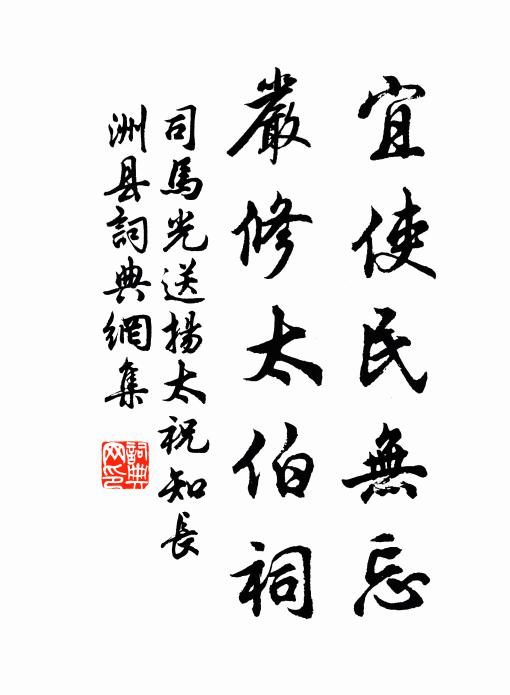 宜使民無忘
嚴修太伯祠
司馬光送揚太祝知長
洲县詞典網集
詞典
网印